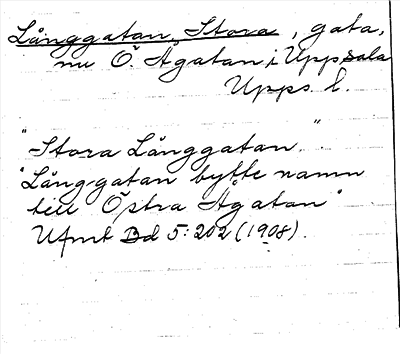 Långgatan, Stora, gata,
nu Ö. Ågatan i Uppsala
Upps. l.
"Stora Långgatan."
"Långgatan bytte namn
till Östra Ågatan"
Ufmt Bd 5:202 (1908).